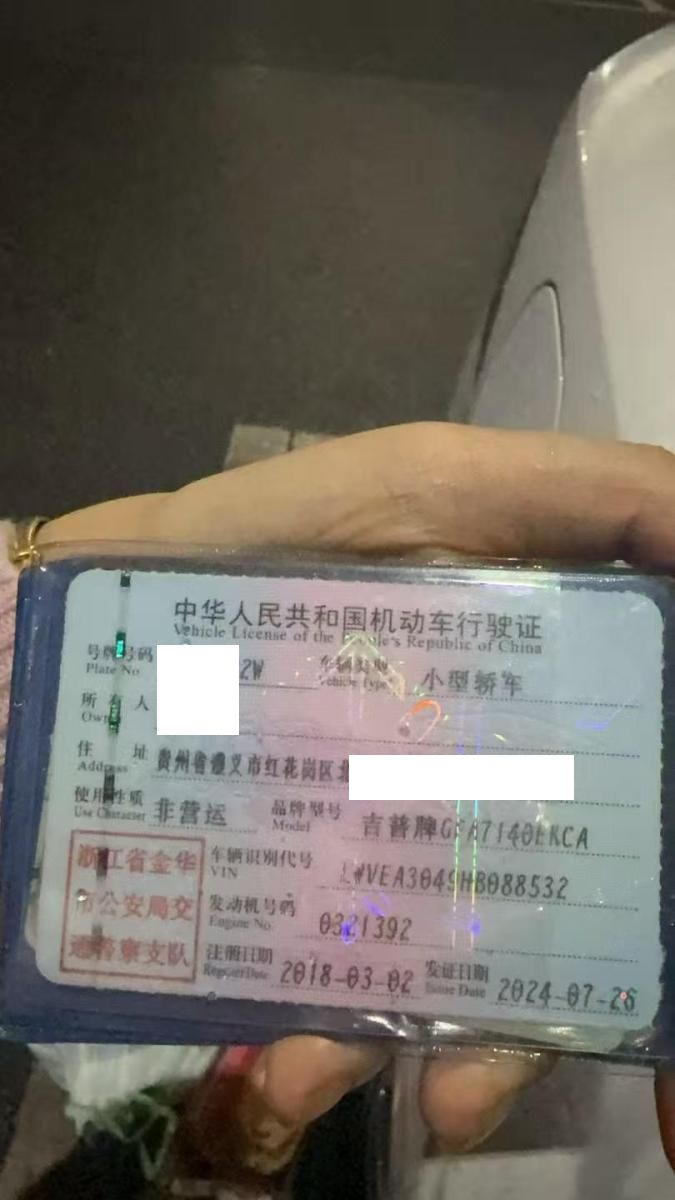 中华人民共和国机动车行驶证
Vehicle License of the People's Republic of China
号牌号码 2W 车辆类型 小型轿车
Plate No Vehicle Type
所有人
Owner
住址 贵州省遵义市红花岗区北
Address
使用性质 非营运 品牌型号 吉普牌GFA7140EKCA
Use Character Model
浙江省金华
市公安局交
通警察支队
车辆识别代号 LWVEA3049HB088532
VIN
发动机号码 0321392
Engine No.
注册日期 2018-03-02 发证日期 2024-07-26
Register Date Issue Date